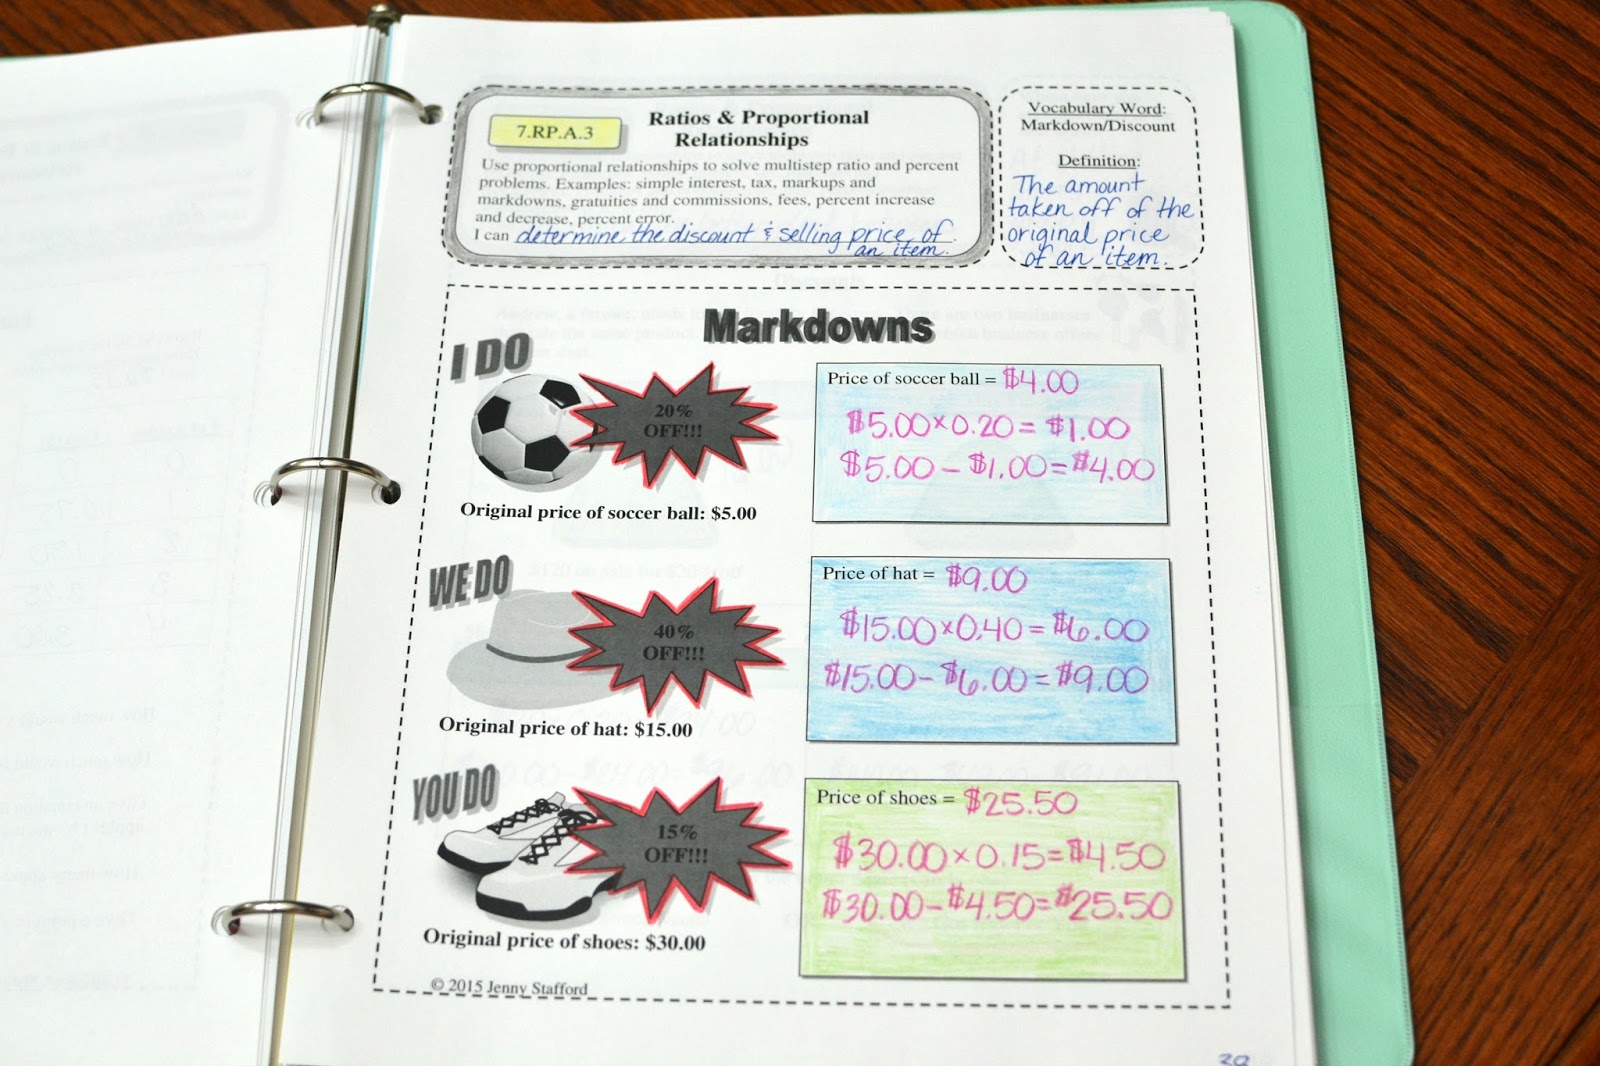 7.RP.A.3
Ratios & Proportional
Relationships
Use proportional relationships to solve multistep ratio and percent
problems. Examples: simple interest, tax, markups and
markdowns, gratuities and commissions, fees, percent increase
and decrease, percent error.
I can determine the discount & selling price of
an item.
Vocabulary Word:
Markdown/Discount
Definition:
The amount
taken off of the
original price
of an item.
Markdowns
I DO
20%
OFF!!!
Original price of soccer ball: $5.00
Price of soccer ball = $4.00
$5.00 x 0.20 = $1.00
$5.00 - $1.00 = $4.00
WE DO
40%
OFF!!!
Original price of hat: $15.00
Price of hat = $9.00
$15.00 x 0.40 = $6.00
$15.00 - $6.00 = $9.00
YOU DO
15%
OFF!!!
Original price of shoes: $30.00
Price of shoes = $25.50
$30.00 x 0.15 = $4.50
$30.00 - $4.50 = $25.50
© 2015 Jenny Stafford